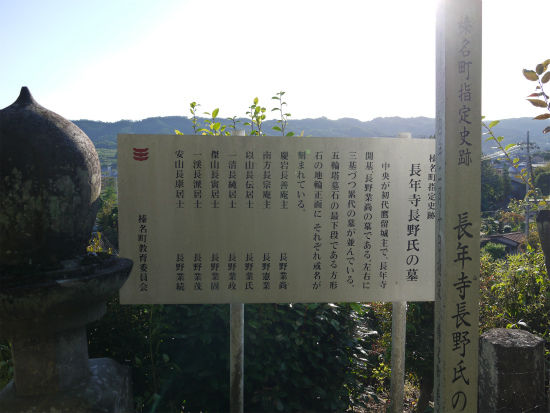 榛名町指定史跡 長年寺長野氏の
榛名町指定史跡
長年寺長野氏の墓
中央が初代鷹留城主で、長年寺
開基、長野業尚の墓である。左右に
三基づつ累代の墓が並んでいる。
五輪塔墓石の最下段である方形
石の地輪正面に それぞれ戒名が
刻まれている。
慶岩長善庵主 長野業尚
南方長宗庵主 長野憲業
以山長伝居士 長野業氏
一清長純居士 長野業政
傑山長寅居士 長野業固
一渓長派居士 長野業茂
安山長康居士 長野業続
榛名町教育委員会